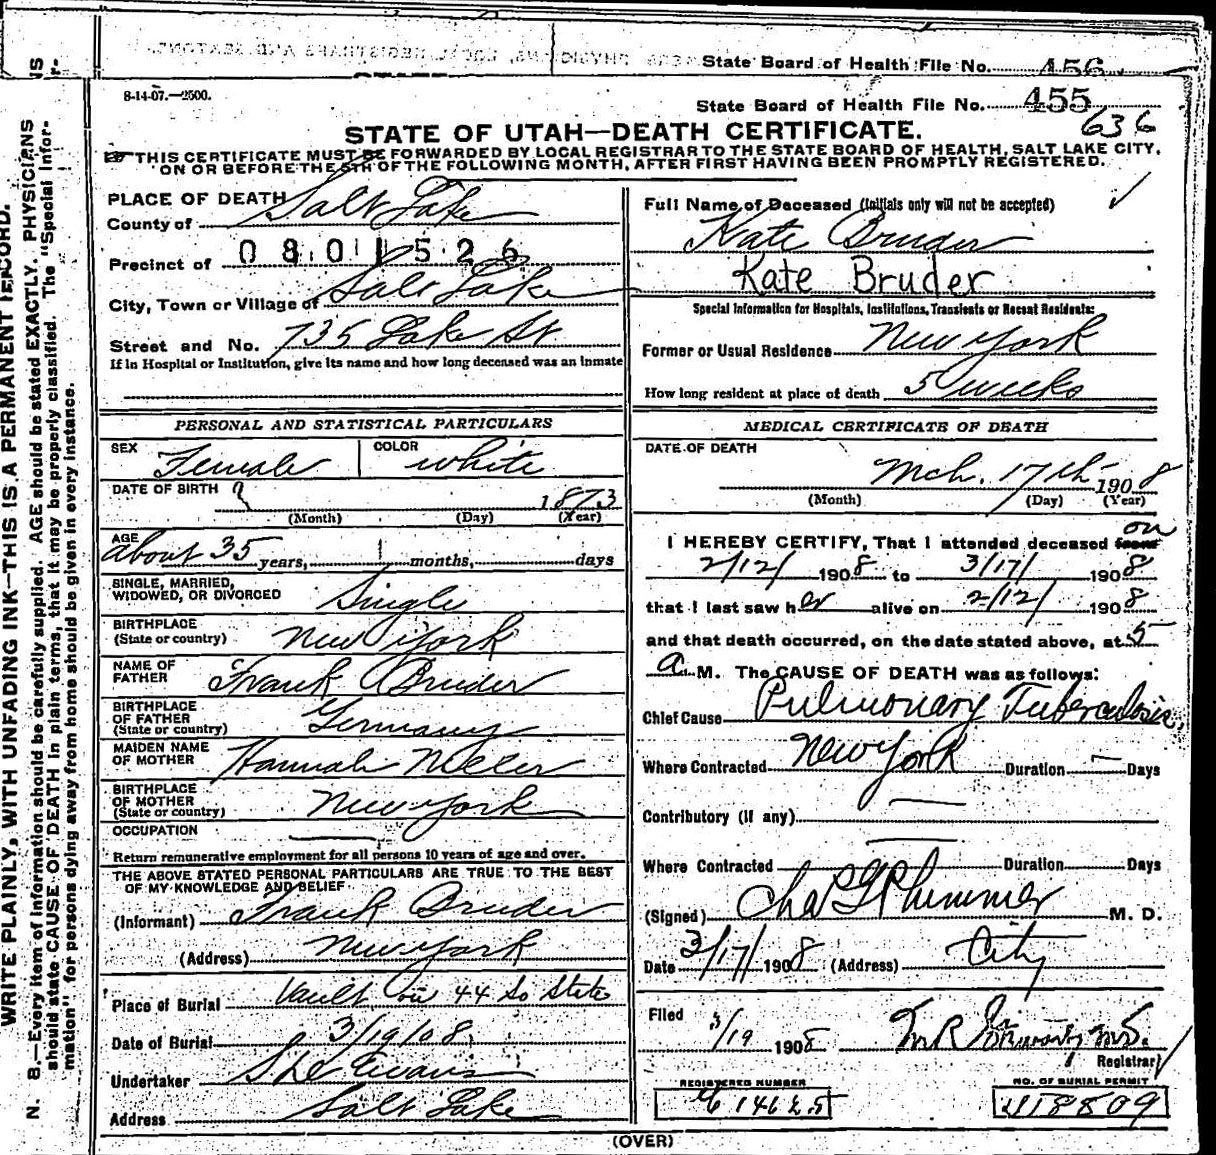 State Board of Health File No. 456
8-14-07.—2500.
State Board of Health File No. 455
636
STATE OF UTAH—DEATH CERTIFICATE.
THIS CERTIFICATE MUST BE FORWARDED BY LOCAL REGISTRAR TO THE STATE BOARD OF HEALTH, SALT LAKE CITY,
ON OR BEFORE THE 5TH OF THE FOLLOWING MONTH, AFTER FIRST HAVING BEEN PROMPTLY REGISTERED.
PLACE OF DEATH
County of Salt Lake
Precinct of 0801526
City, Town or Village of Salt Lake
Street and No. 735 Lake St.
If in Hospital or Institution, give its name and how long deceased was an inmate
Full Name of Deceased (Initials only will not be accepted)
Kate Bruder
Kate Bruder
Special Information for Hospitals, Institutions, Transients or Recent Residents:
Former or Usual Residence New York
How long resident at place of death 5 weeks
PERSONAL AND STATISTICAL PARTICULARS
SEX Female COLOR white
DATE OF BIRTH ? 1873
(Month) (Day) (Year)
AGE about 35 years, months, days
SINGLE, MARRIED,
WIDOWED, OR DIVORCED Single
BIRTHPLACE
(State or country) New York
NAME OF
FATHER Frank Bruder
BIRTHPLACE
OF FATHER
(State or country) Germany
MAIDEN NAME
OF MOTHER Hannah
BIRTHPLACE
OF MOTHER
(State or country) New York
OCCUPATION
Return remunerative employment for all persons 10 years of age and over.
THE ABOVE STATED PERSONAL PARTICULARS ARE TRUE TO THE BEST
OF MY KNOWLEDGE AND BELIEF
(Informant) Frank Bruder
(Address) New York
Place of Burial Vault 44 So State
Date of Burial 3/19/08
Undertaker Evans
Address Salt Lake
MEDICAL CERTIFICATE OF DEATH
DATE OF DEATH
Mch. 17th 1908
(Month) (Day) (Year)
I HEREBY CERTIFY, That I attended deceased from on
2/12/ 1908 to 3/17/ 1908
that I last saw her alive on 2/12/ 1908
and that death occurred, on the date stated above, at 5
a. M. The CAUSE OF DEATH was as follows:
Chief Cause Pulmonary Tuberculosis,
Where Contracted New York Duration — Days
Contributory (if any)
Where Contracted Duration Days
(Signed) Chas G Plummer M. D.
Date 3/17/ 1908 (Address) City
Filed 3/19 1908
Registrar
REGISTERED NUMBER
NO. OF BURIAL PERMIT
(OVER)
WRITE PLAINLY, WITH UNFADING INK—THIS IS A PERMANENT RECORD.
N. B.—Every item of information should be carefully supplied. AGE should be stated EXACTLY. PHYSICIANS
should state CAUSE OF DEATH in plain terms, that it may be properly classified. The "Special Infor-
mation" for persons dying away from home should be given in every instance.